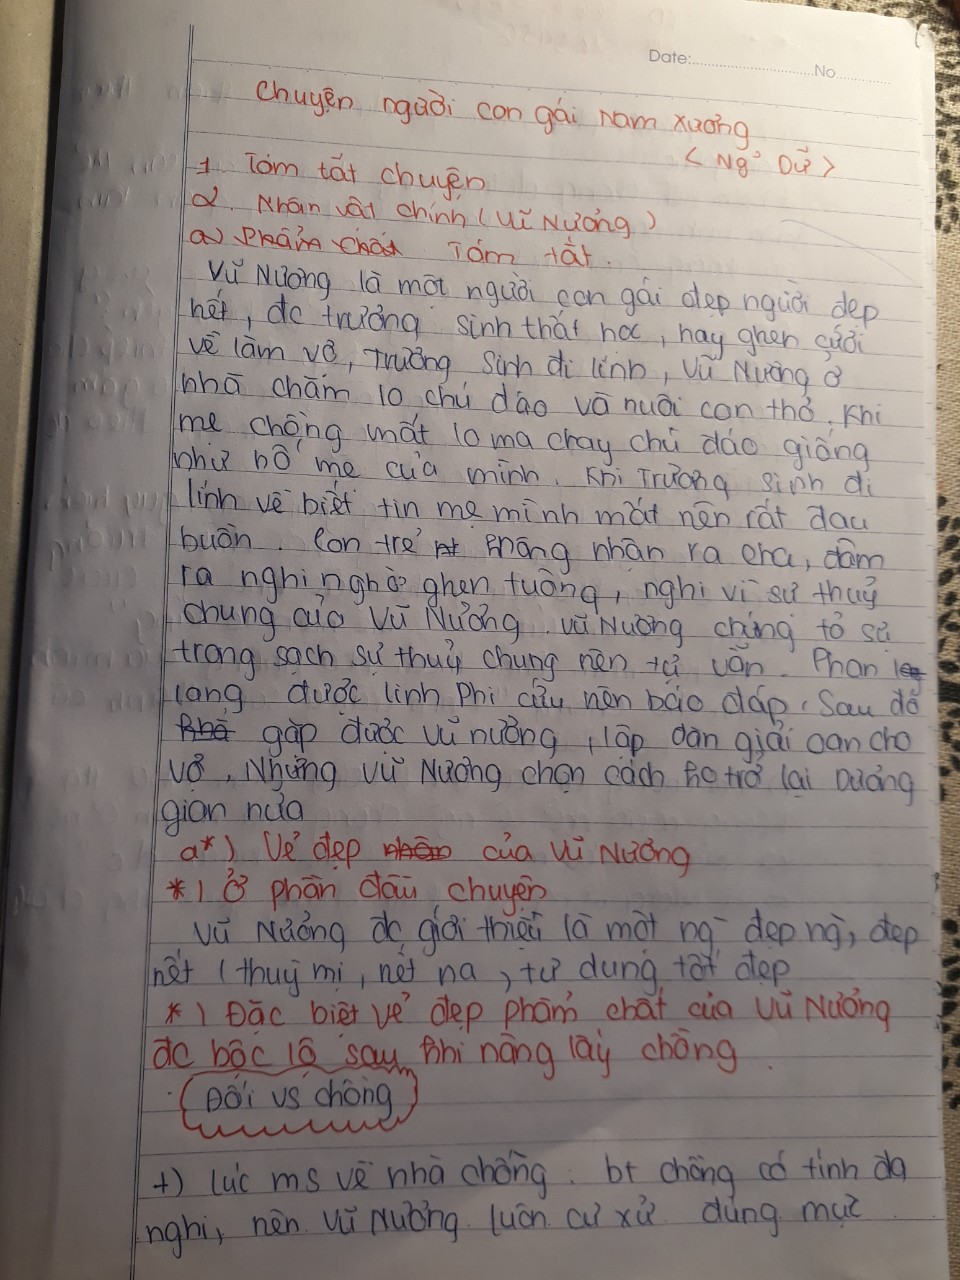 Date: No
Chuyện người con gái Nam Xương
< Ng~ Dữ >
1 Tóm tắt chuyện
2. Nhân vật chính (Vũ Nương)
a) Tóm tắt.
Vũ Nương là một người con gái đẹp người đẹp
nết, đc trưởng sinh thất học, hay ghen cưới
về làm vợ, Trưởng Sinh đi lính, Vũ Nương ở
nhà chăm lo chú đáo và nuôi con thơ. Khi
mẹ chồng mất lo ma chay chú đáo giống
như bố mẹ của mình. Khi Trương Sinh đi
lính về biết tin mẹ mình mất nên rất đau
buồn. Con trẻ không nhận ra cha, đâm
ra nghi ngờ ghen tuông, nghi vì sự thuỷ
chung của Vũ Nương. Vũ Nương chứng tỏ sự
trong sạch sự thuỷ chung nên tự vẫn. Phan
lang được linh Phi cứu nên báo đáp. Sau đó
gặp được vũ nương, lập đàn giải oan cho
vợ, Nhưng Vũ Nương chọn cách ko trở lại Dương
gian nữa
a*) Vẻ đẹp của Vũ Nương
*) Ở phần đầu chuyện
Vũ Nương đc giới thiệu là một ng~ đẹp ng~, đẹp
nết (thuỳ mị, nết na, tư dung tốt đẹp
*) Đặc biệt vẻ đẹp phẩm chất của Vũ Nương
đc bộc lộ sau khi nàng lấy chồng.
Đối vs chồng
+) lúc ms về nhà chồng: bt chồng có tính đa
nghi, nên Vũ Nương luôn cư xử đúng mực